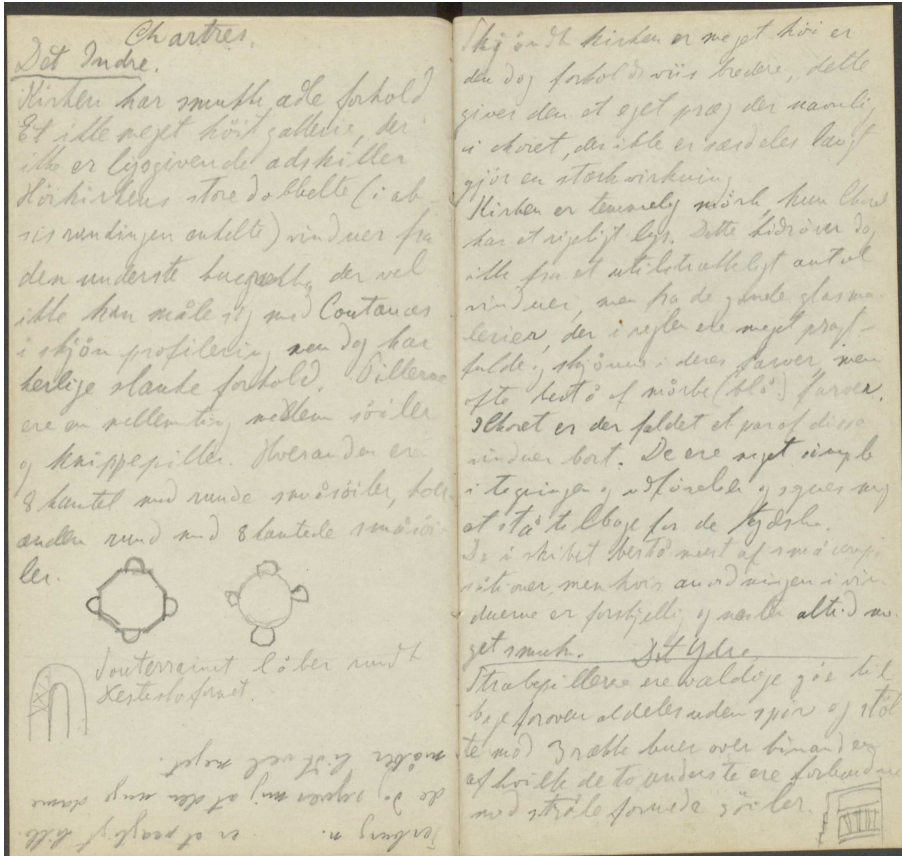 Chartres.
Det Indre.
Kirken har smukke, ædle forhold
Et ikke meget höit gallerie, der
ikke er lysgivende adskiller
Höikirkens store dobbelte (i ab-
sisrundingen enkelte) vinduer fra
den underste buerække, der vel
ikke kan måle sig med Coutances
i skjön profilering, men dog har
herlige slanke forhold. Pillerne
ere en mellemting mellem söiler
og knippepiller. Hveranden er
8 kantet med runde småsöiler, hver
anden rund med 8 kantede småsöi-
ler.
Souterrainet löber rundt
Skjöndt kirken er meget höi er
den dog forholdsviis bredere, dette
giver den et eget præg der navnlig
i choret, der ikke er særdeles langt
gjör en stærk virkning
Kirken er temmelig mörk, kun Choret
har et rigeligt lys. Dette hidrörer dog
ikke fra et utilstrækkeligt antal
vinduer, men fra de gamle glasma-
lerier, der i reglen ere meget pragt-
fulde og skjönne i deres farver, men
ofte bestå af mörke (blå) farver.
I Choret er der faldet et par af disse
vinduer bort. De ere meget simple
i tegningen og udförelsen og synes mig
at stå tilbage for de tydske.
De i skibet bestå mest af små compo
sitioner, men hvis anordningen i vin
duerne er forskjellig og næsten altid me-
get smuk. Det Ydre.
Stræbepillerne ere vældige gå til
bage foroven aldeles uden spir og stöt
te med 3 række buer over hinanden
af hvilke de to underste ere forbundne
med stråleformede söiler.
de dog synes mig at den unge dame
måler lidt vel meget.